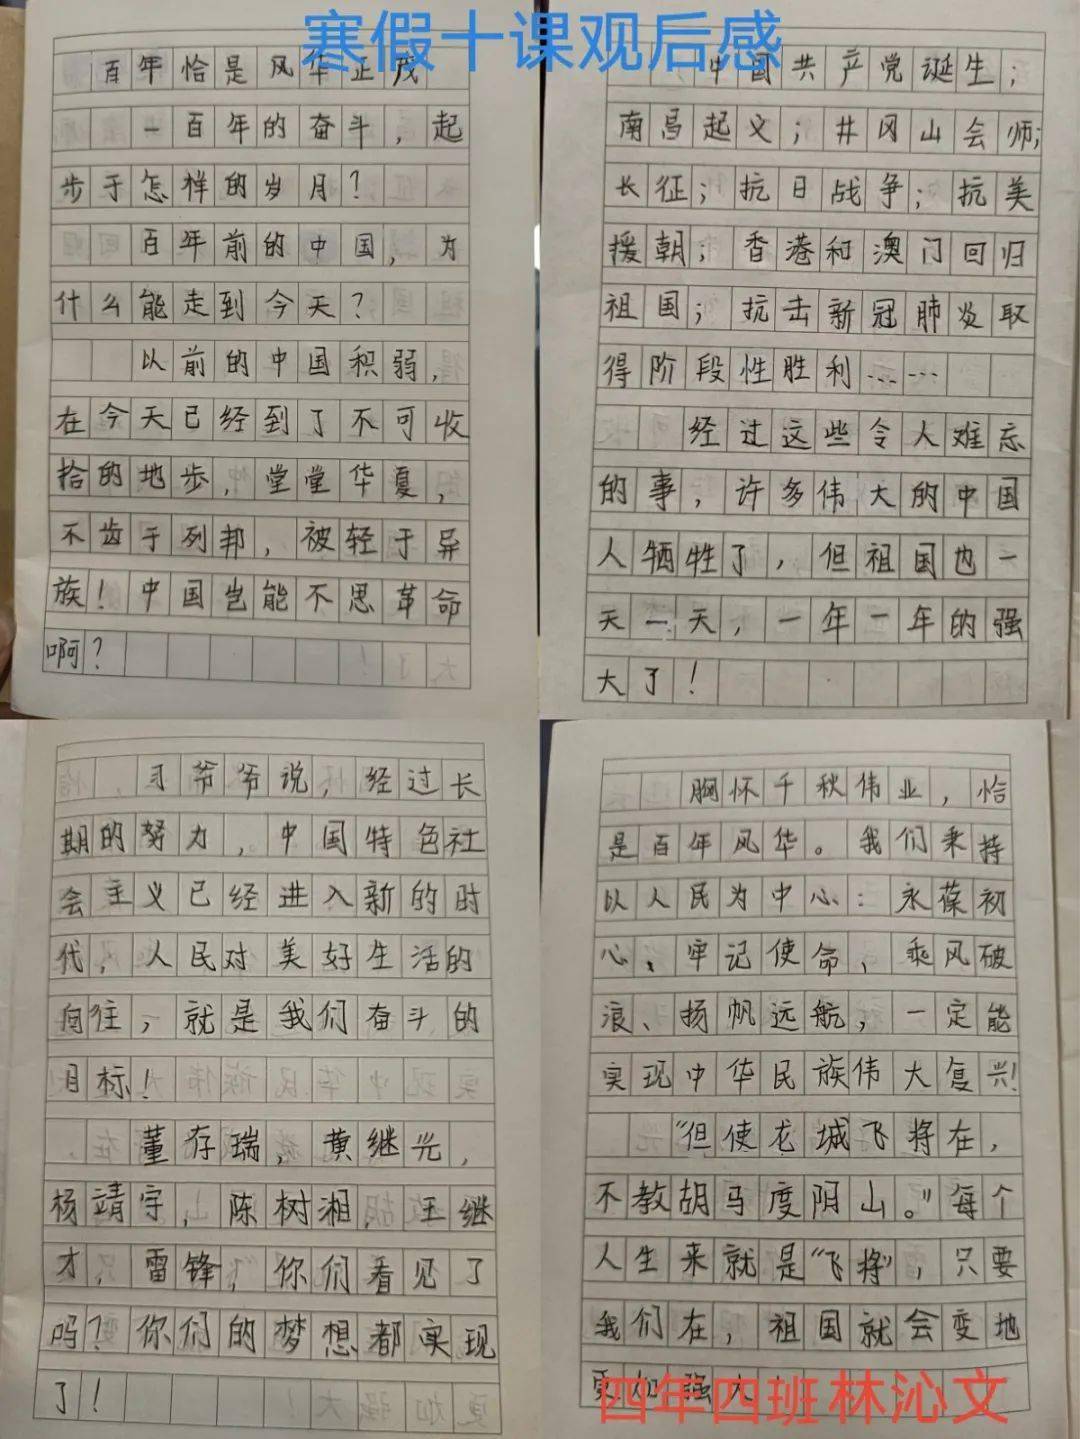 寒假十课观后感
百年恰是风华正茂
一百年的奋斗，起
步于怎样的岁月？
百年前的中国，为
什么能走到今天？
以前的中国积弱，
在今天已经到了不可收
拾的地步，堂堂华夏，
不齿于列邦，被轻于异
族！中国岂能不思革命
啊？
中国共产党诞生；
南昌起义；井冈山会师；
长征；抗日战争；抗美
援朝；香港和澳门回归
祖国；抗击新冠肺炎取
得阶段性胜利……
经过这些令人难忘
的事，许多伟大的中国
人牺牲了，但祖国也一
天一天，一年一年的强
大了！
习爷爷说，经过长
期的努力，中国特色社
会主义已经进入新的时
代，人民对美好生活的
向往，就是我们奋斗的
目标！
董存瑞，黄继光，
杨靖宇，陈树湘，王继
才，雷锋，你们看见了
吗？你们的梦想都实现
了！
胸怀千秋伟业，恰
是百年风华。我们秉持
以人民为中心：永葆初
心、牢记使命，乘风破
浪、扬帆远航，一定能
实现中华民族伟大复兴！
“但使龙城飞将在，
不教胡马度阴山。”每个
人生来就是“飞将”，只要
我们在，祖国就会变地
更加强大！
四年四班林沁文